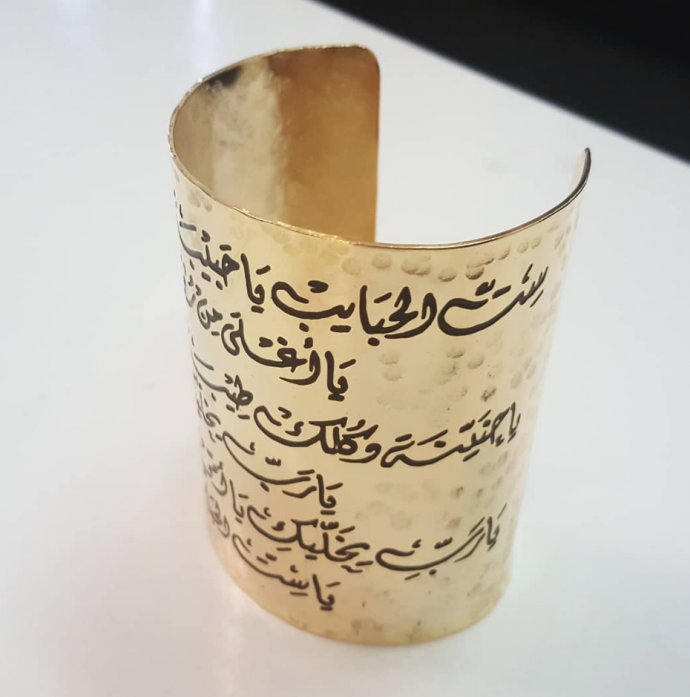 ست الحبايب يا حبيبة
يا أغلى من
يا حنينة وكلك طيبة
يا رب يخليكي
يا رب يخليكي يا أمي
يا ست